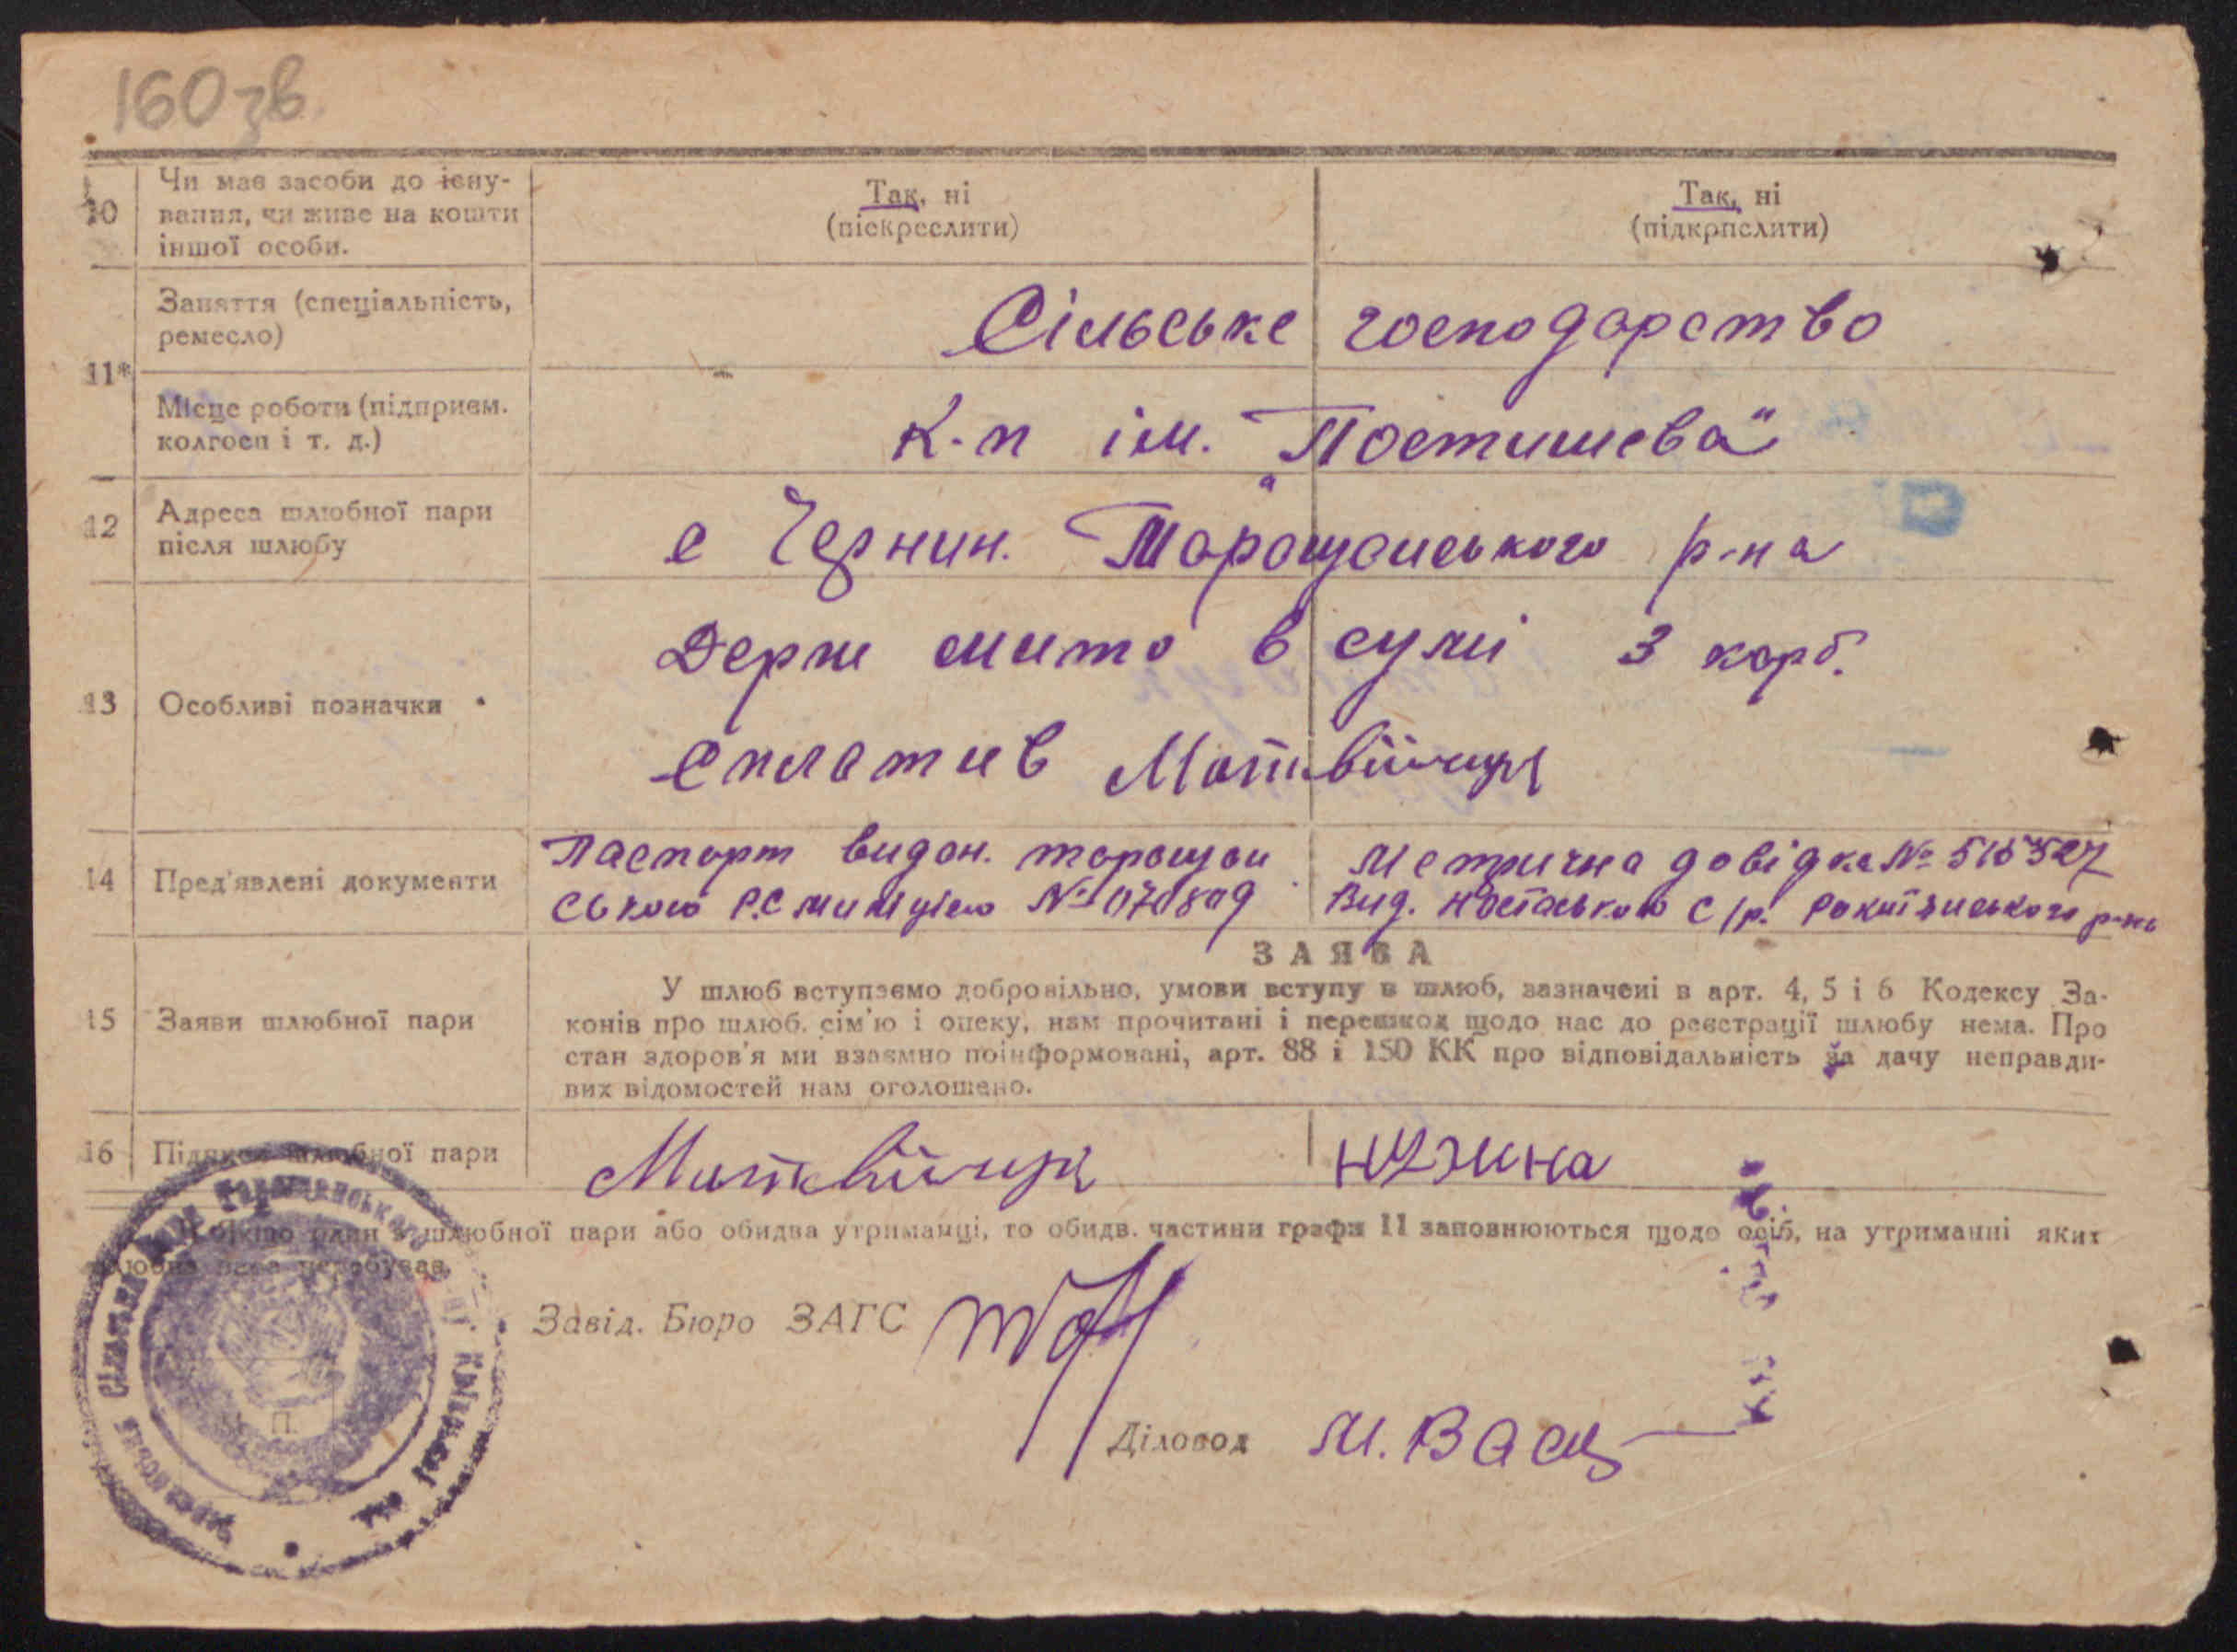 160зв
10 Чи має засоби до існу-
вання, чи живе на кошти
іншої особи.
Так, ні
(піекреслити)
Так, ні
(підкрпслити)
11*
Заняття (спеціальність,
ремесло)
Сільське господарство
Місце роботи (підприєм.
колгосп і т. д.)
К-п ім. "Постишева"
12 Адреса шлюбної пари
після шлюбу
с Чернин. Таращанського р-на
13 Особливі позначки
Держ мито в сумі 3 карб.
сплатив Матвійчук
14 Пред'явлені документи
Паспорт видан. таращан
ського Р.С міліцією № 070809
Метрична довідка № 516527
Вид. Насташкою С/р. Рокитянського р-на
15 Заяви шлюбної пари
ЗАЯВА
У шлюб вступаємо добровільно, умови вступу в шлюб, зазначені в арт. 4, 5 і 6 Кодексу За-
конів про шлюб, сім'ю і опеку, нам прочитані і перешкод щодо нас до реєстрації шлюбу нема. Про
стан здоров'я ми взаємно поінформовані, арт. 88 і 150 КК про відповідальність за дачу неправди-
вих відомостей нам оголошено.
16 Підписи шлюбної пари
Матвійчук
нужина
Якщо один з шлюбної пари або обидва утриманці, то обидв. частини графи 11 заповнюються щодо осіб, на утриманні яких
шлюбна пара перебуває.
Завід. Бюро ЗАГС
Діловод М. Васц
М. П.